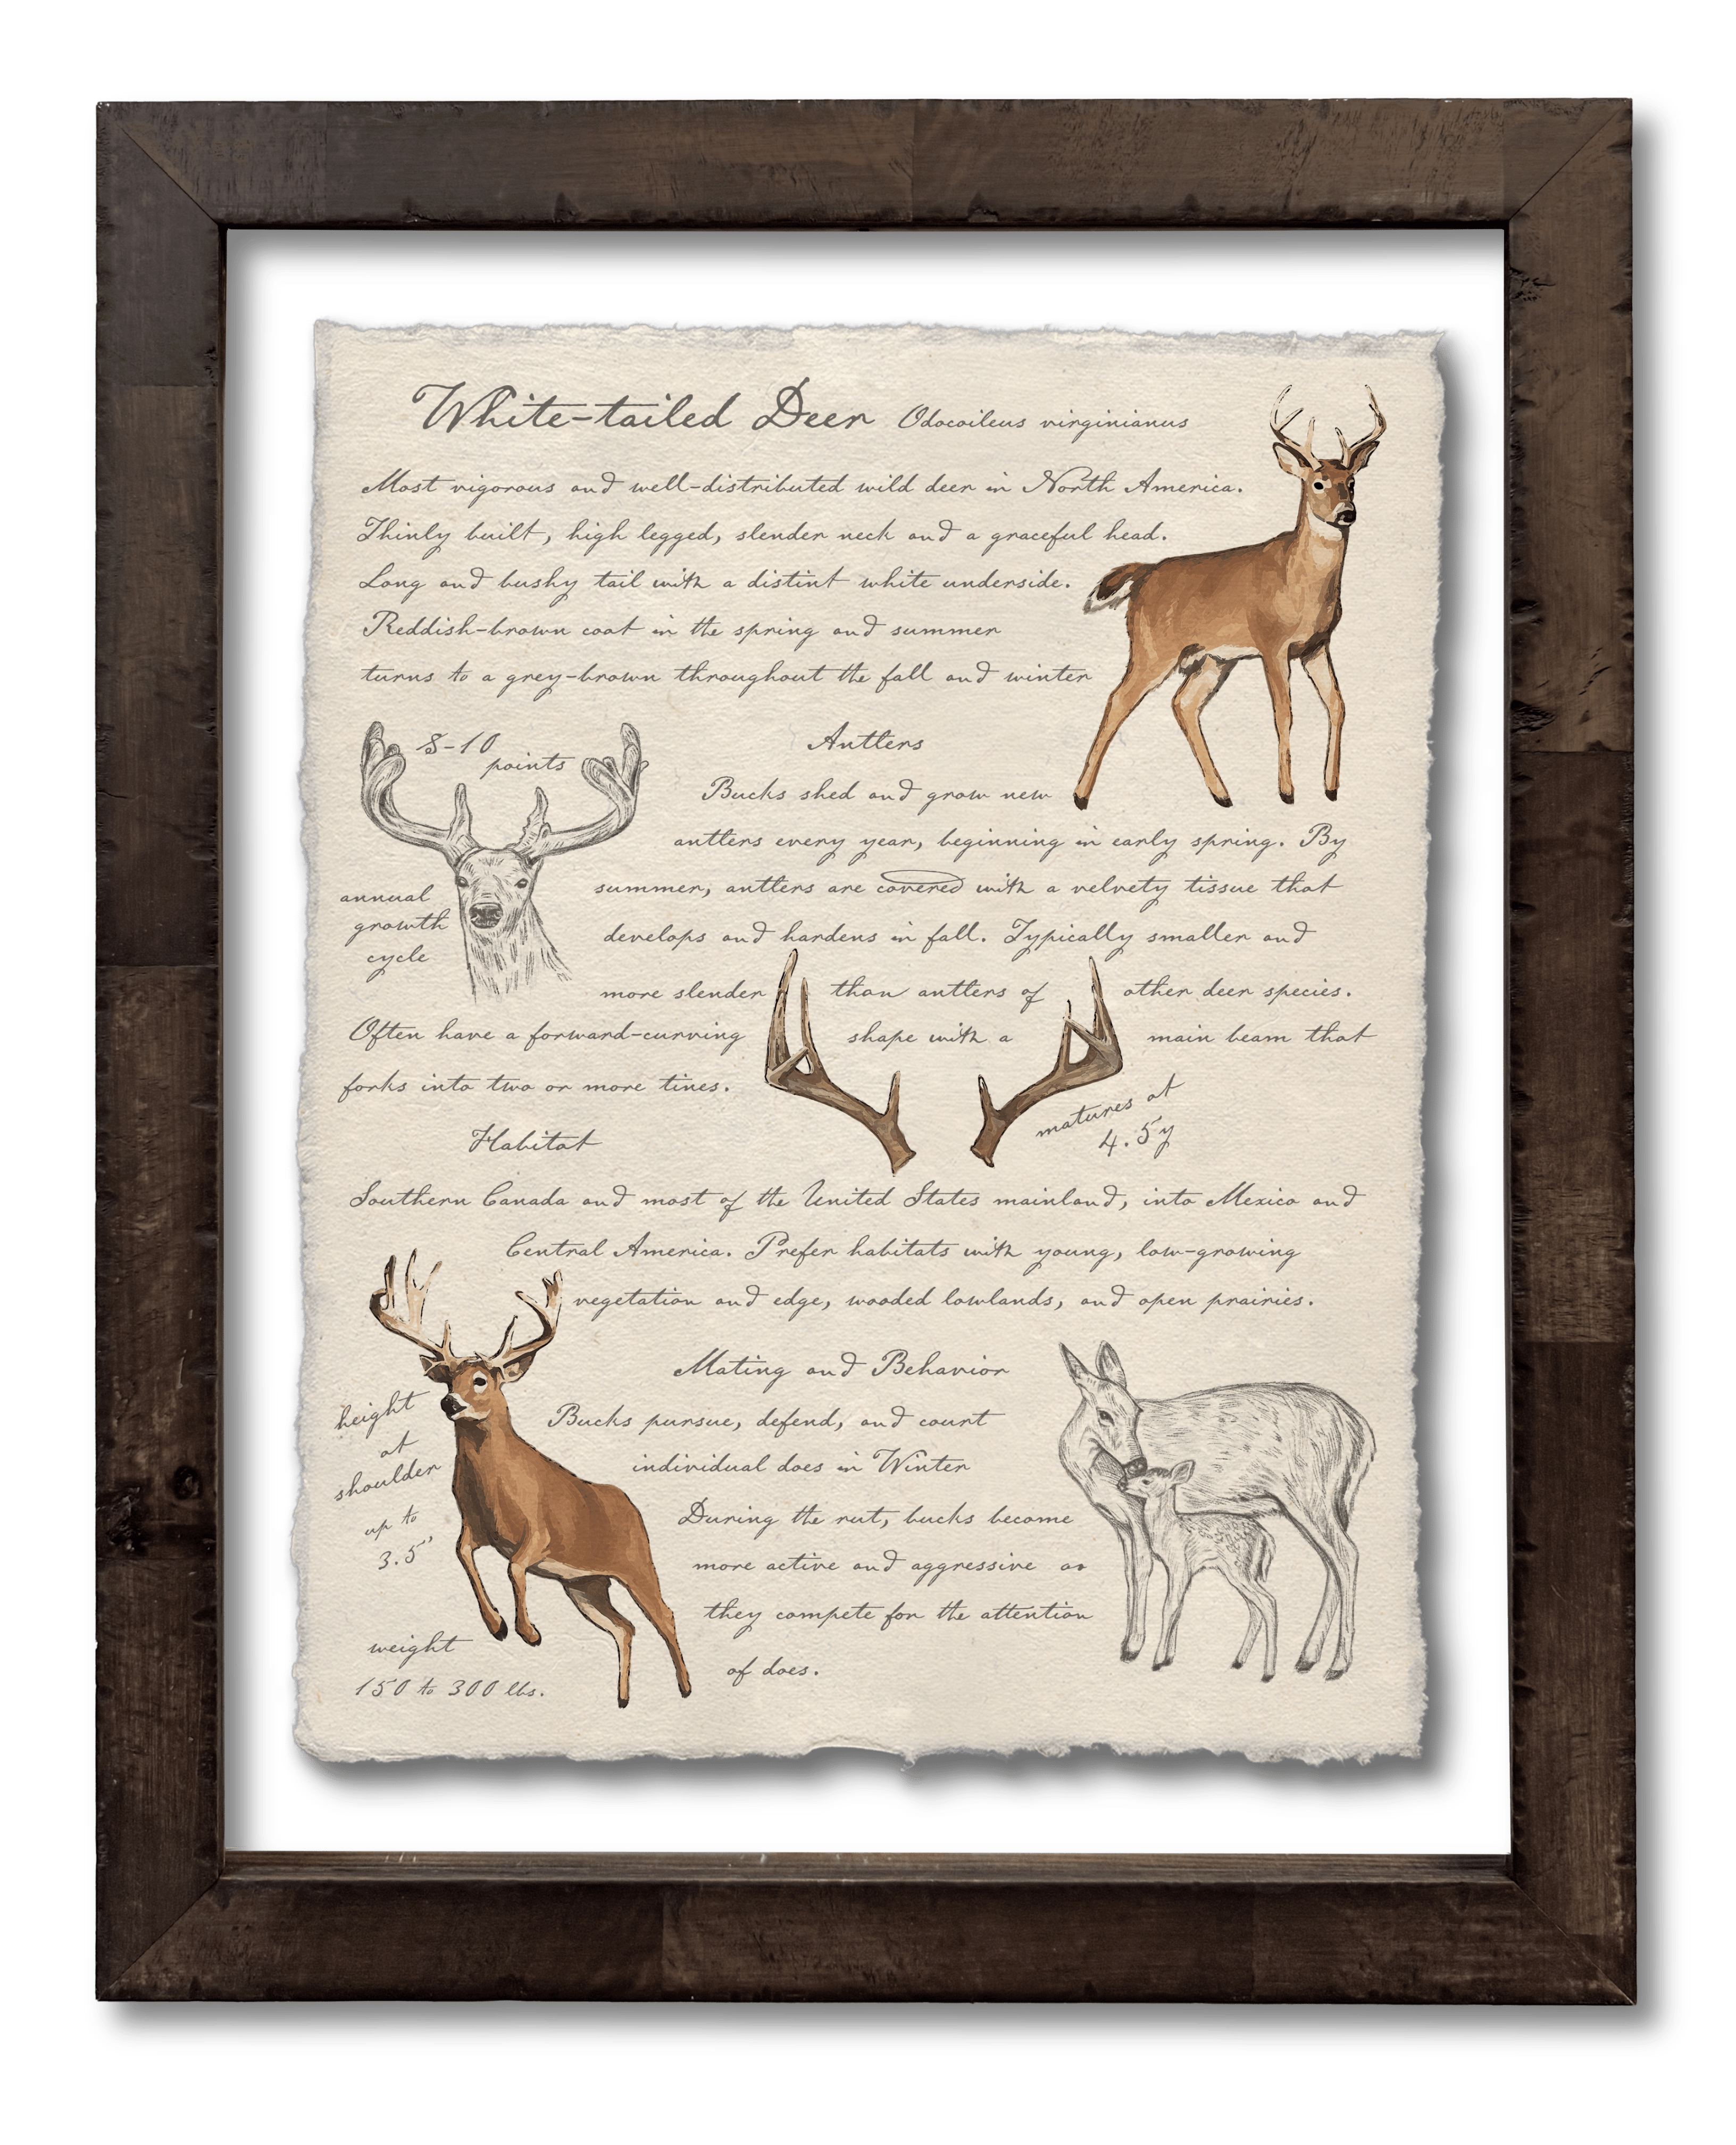 White-tailed Deer Odocoileus virginianus
Most vigorous and well-distributed wild deer in North America.
Thinly built, high legged, slender neck and a graceful head.
Long and bushy tail with a distint white underside.
Reddish-brown coat in the spring and summer
turns to a grey-brown throughout the fall and winter
8-10
points
annual
growth
cycle
Antlers
Bucks shed and grow new
antlers every year, beginning in early spring. By
summer, antlers are covered with a velvety tissue that
develops and hardens in fall. Typically smaller and
more slender than antlers of other deer species.
Often have a forward-curving shape with a main beam that
forks into two or more tines.
matures at
4.5y
Habitat
Southern Canada and most of the United States mainland, into Mexico and
Central America. Prefer habitats with young, low-growing
vegetation and edge, wooded lowlands, and open prairies.
Mating and Behavior
Bucks pursue, defend, and court
individual does in Winter
During the rut, bucks become
more active and aggressive as
they compete for the attention
of does.
height
at
shoulder
up to
3.5'
weight
150 to 300 lbs.